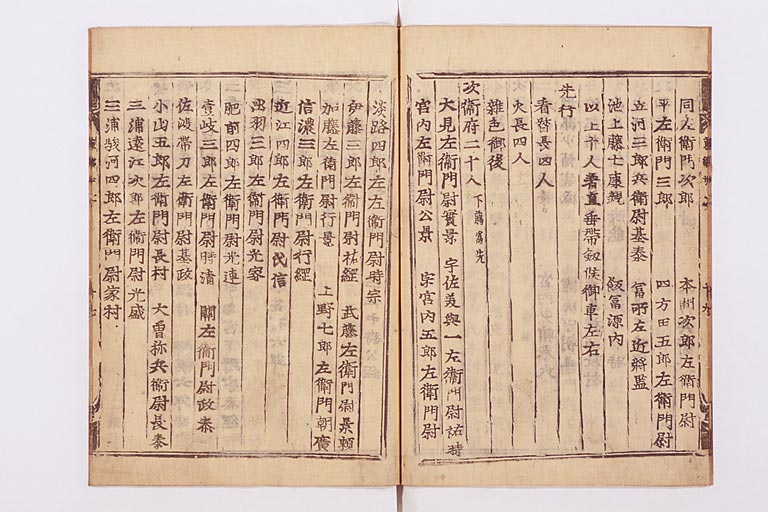 同左衛門次郎　本間次郎左衛門尉
平左衛門三郎　四方田五郎左衛門尉
立河三郎兵衛尉基泰　富所左近將監
池上藤七康親　飯冨源内
以上十人著直垂帶釼候御車左右
先行
看督長四人
火長四人
雜色御後
次衞府二十人　下﨟為先
大見左衞門尉實景　宇佐美與一左衞門尉祐時
宮内左衞門尉公景　宗宮内五郎左衞門尉
淡路四郎左衞門尉時宗
伊藤三郎左衞門尉祐經　武藤左衞門尉景頼
加藤左衞門尉行景　上野七郎左衞門朝廣
信濃三郎左衞門尉行經
近江四郎左衞門尉氏信
出羽三郎左衞門尉光家
肥前四郎左衞門尉光連
壹岐三郎左衞門尉時清　關左衞門尉政泰
佐渡帶刀左衞門尉基政
小山五郎左衞門尉長村　大曾祢兵衞尉長泰
三浦遠江次郎左衞門尉光盛
三浦駿河四郎左衞門尉家村